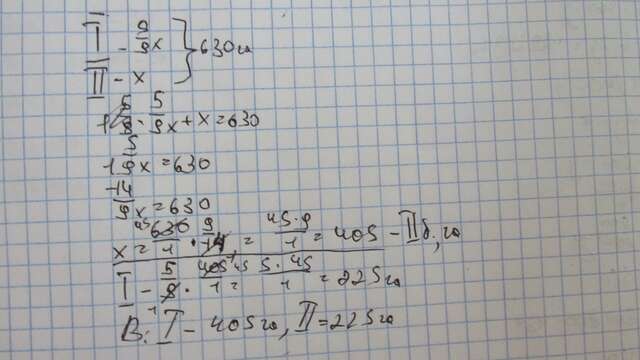 I - 5/9x } 630 га
II - x
5/9x + x = 630
1 5/9x = 630
14/9x = 630
x = 630/1 · 9/14 = 45·9/1 = 405 - II б, га
I - 5/9 · 405/1 = 5·45/1 = 225 га
В: I - 405 га, II = 225 га